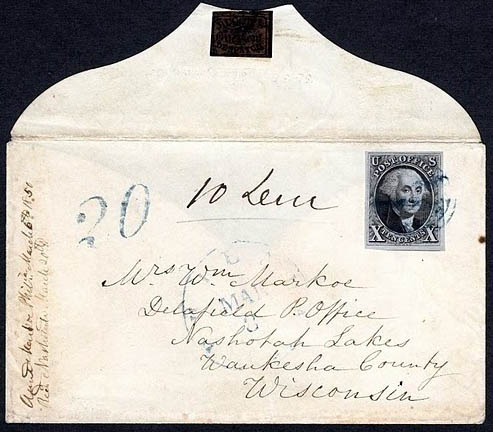 20
10 Dew
U S
POST OFFICE
X TEN CENTS X
MAR
Mrs Wm Markoe
Delafield P. Office
Nashotah Lakes
Waukesha County
Wisconsin
Markoe Phila March 6th 1851
Nashotah March